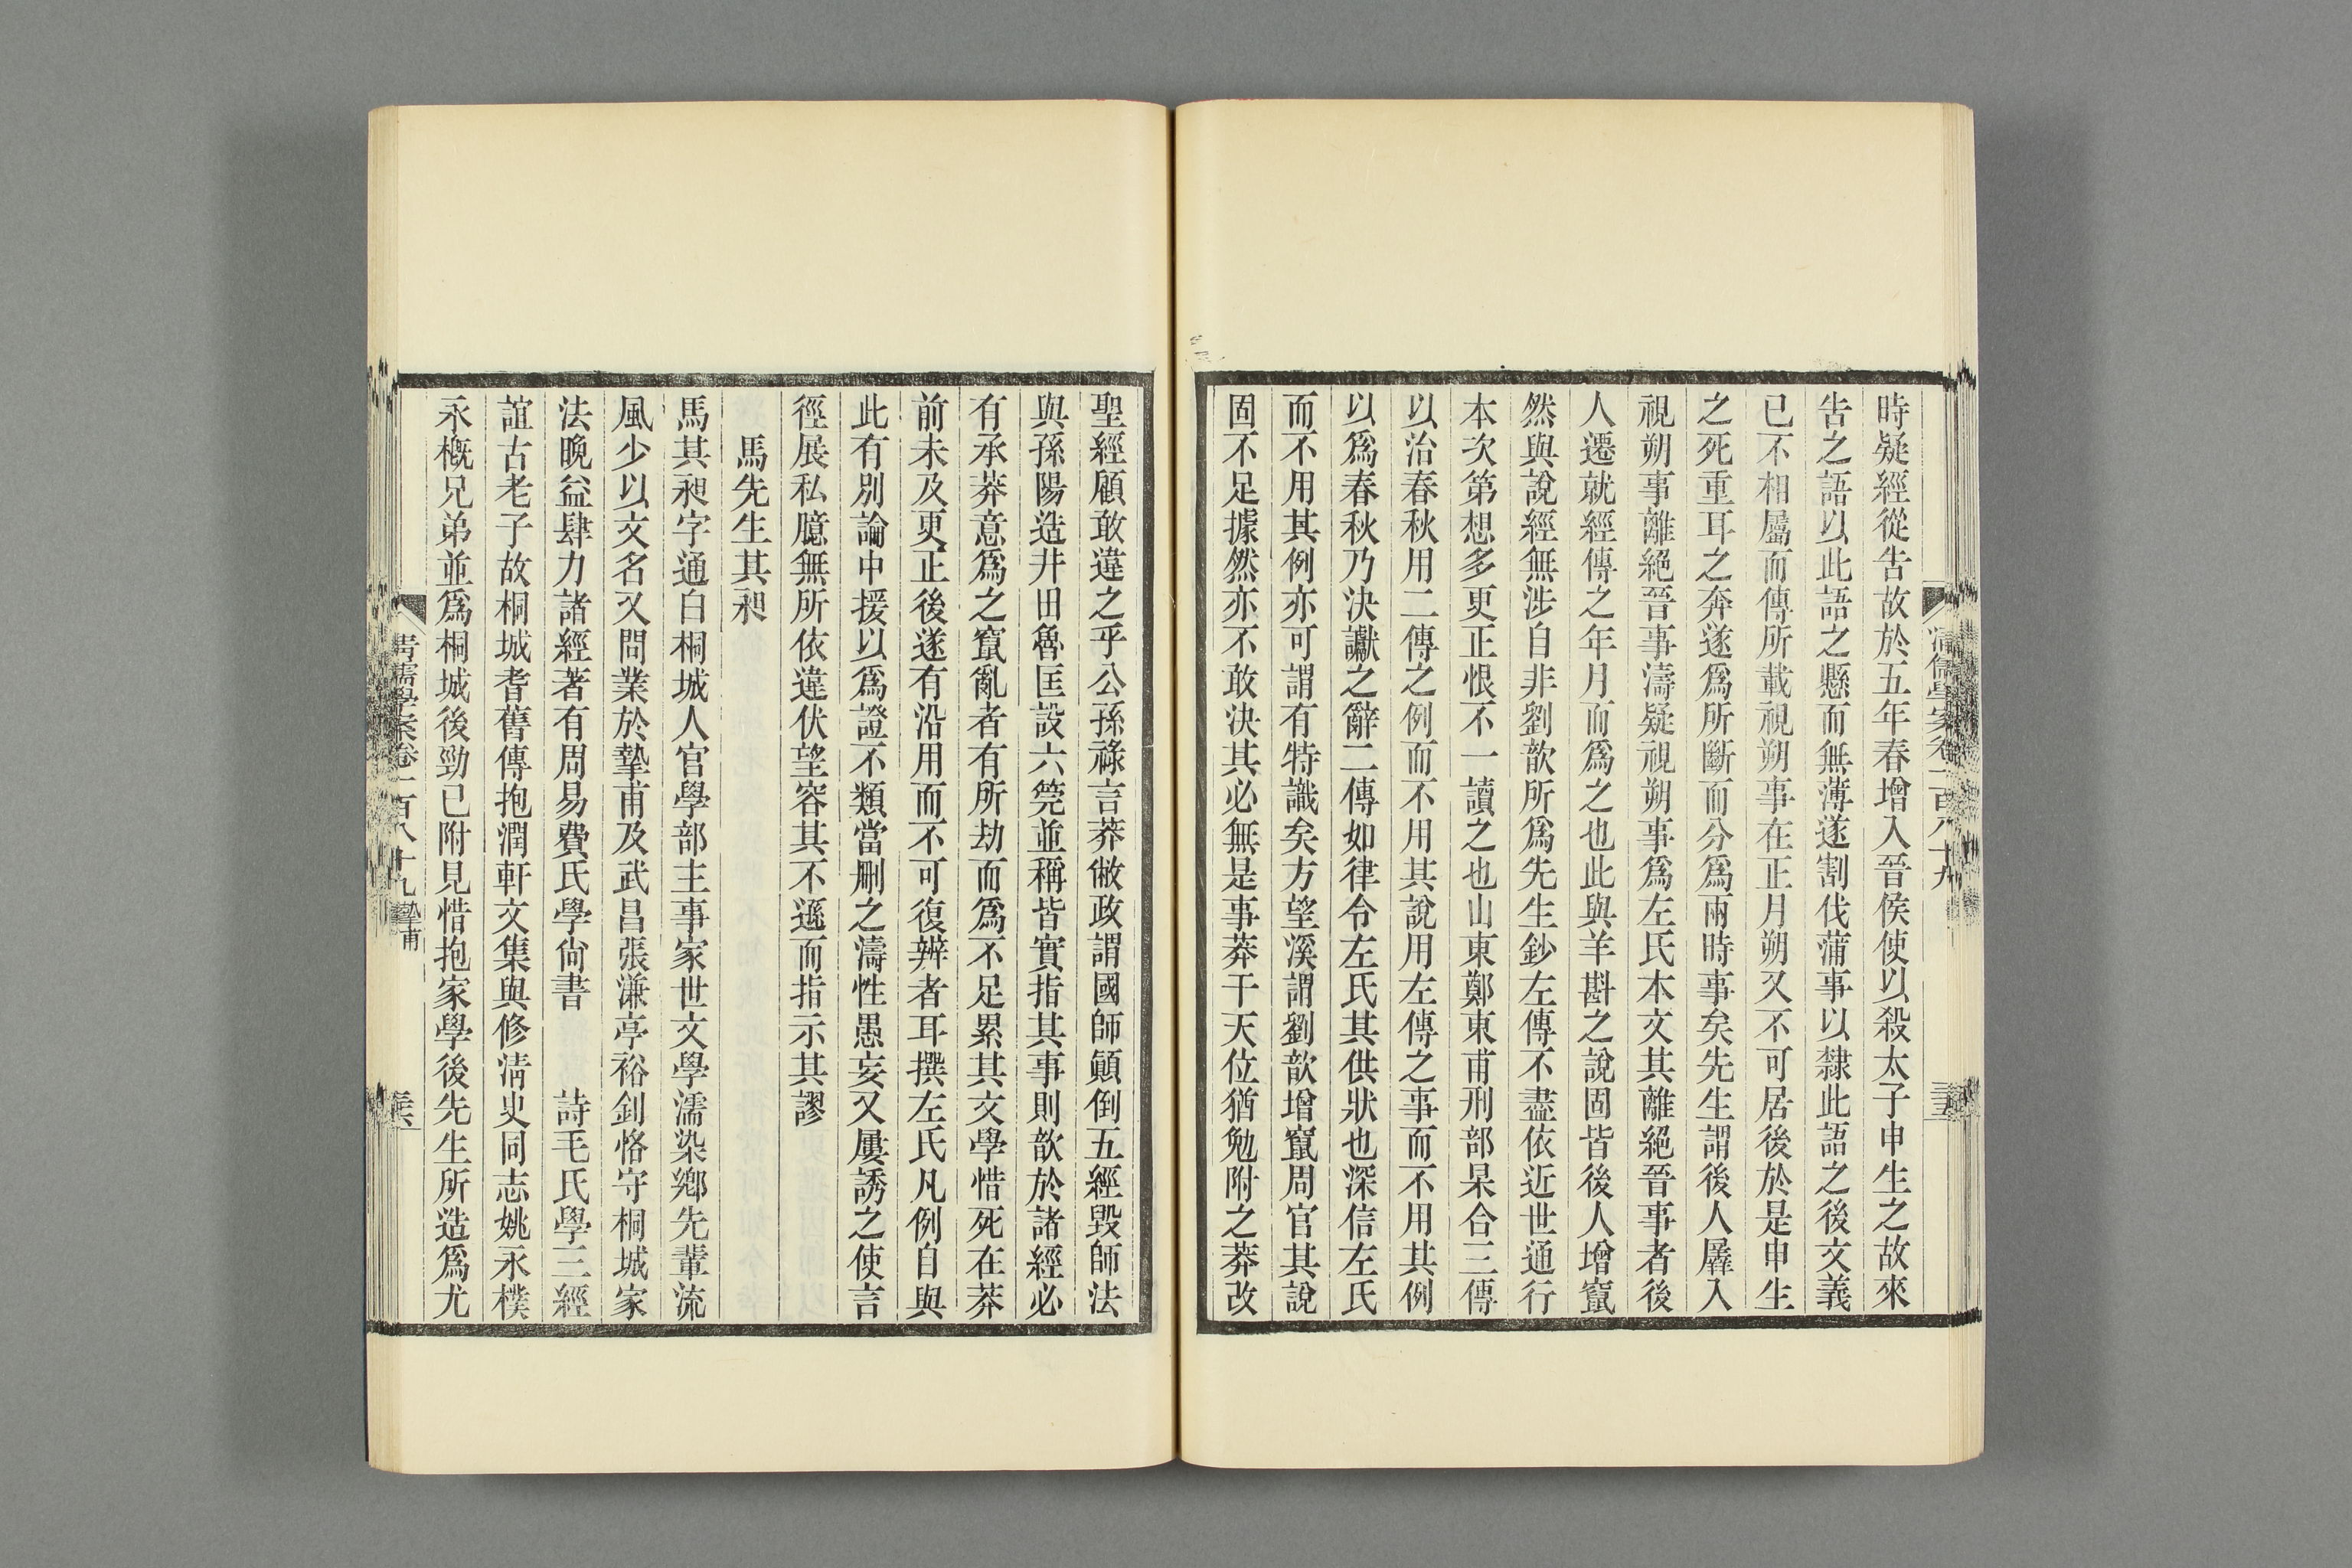 時疑經從告故於五年春增入晉侯使以殺太子申生之故來
告之語以此語之懸而無薄遂割伐蒲事以隸此語之後文義
已不相屬而傳所載視朔事在正月朔又不可居後於是申生
之死重耳之奔遂爲所斷而分爲兩時事矣先生謂後人羼入
視朔事離絕晉事濤疑視朔事爲左氏本文其離絕晉事者後
人遷就經傳之年月而爲之也此與羊斟之說固皆後人增竄
然與說經無涉自非劉歆所爲先生鈔左傳不盡依近世通行
本次第想多更正恨不一讀之也山東鄭東甫刑部杲合三傳
以治春秋用二傳之例而不用其說用左傳之事而不用其例
以爲春秋乃決讞之辭二傳如律令左氏其供狀也深信左氏
而不用其例亦可謂有特識矣方望溪謂劉歆增竄周官其說
固不足據然亦不敢決其必無是事莽干天位猶勉附之莽改
清儒學案卷一百八十九
聖經顧敢違之乎公孫祿言莽僘政謂國師顚倒五經毀師法
與孫陽造井田魯匡設六筦並稱皆實指其事則歆於諸經必
有承莽意爲之竄亂者有所劫而爲不足累其文學惜死在莽
前未及更正後遂有沿用而不可復辨者耳撰左氏凡例自與
此有別論中援以爲證不類當刪之濤性愚妄又屢誘之使言
徑展私臆無所依違伏望容其不遜而指示其謬
馬先生其昶
馬其昶字通白桐城人官學部主事家世文學濡染鄉先輩流
風少以文名又問業於摯甫及武昌張濂亭裕釗恪守桐城家
法晚益肆力諸經著有周易費氏學尙書 詩毛氏學三經
誼古老子故桐城耆舊傳抱潤軒文集與修淸史同志姚永樸
永槪兄弟並爲桐城後勁已附見惜抱家學後先生所造爲尤
清儒學案卷一百八十九 摯甫